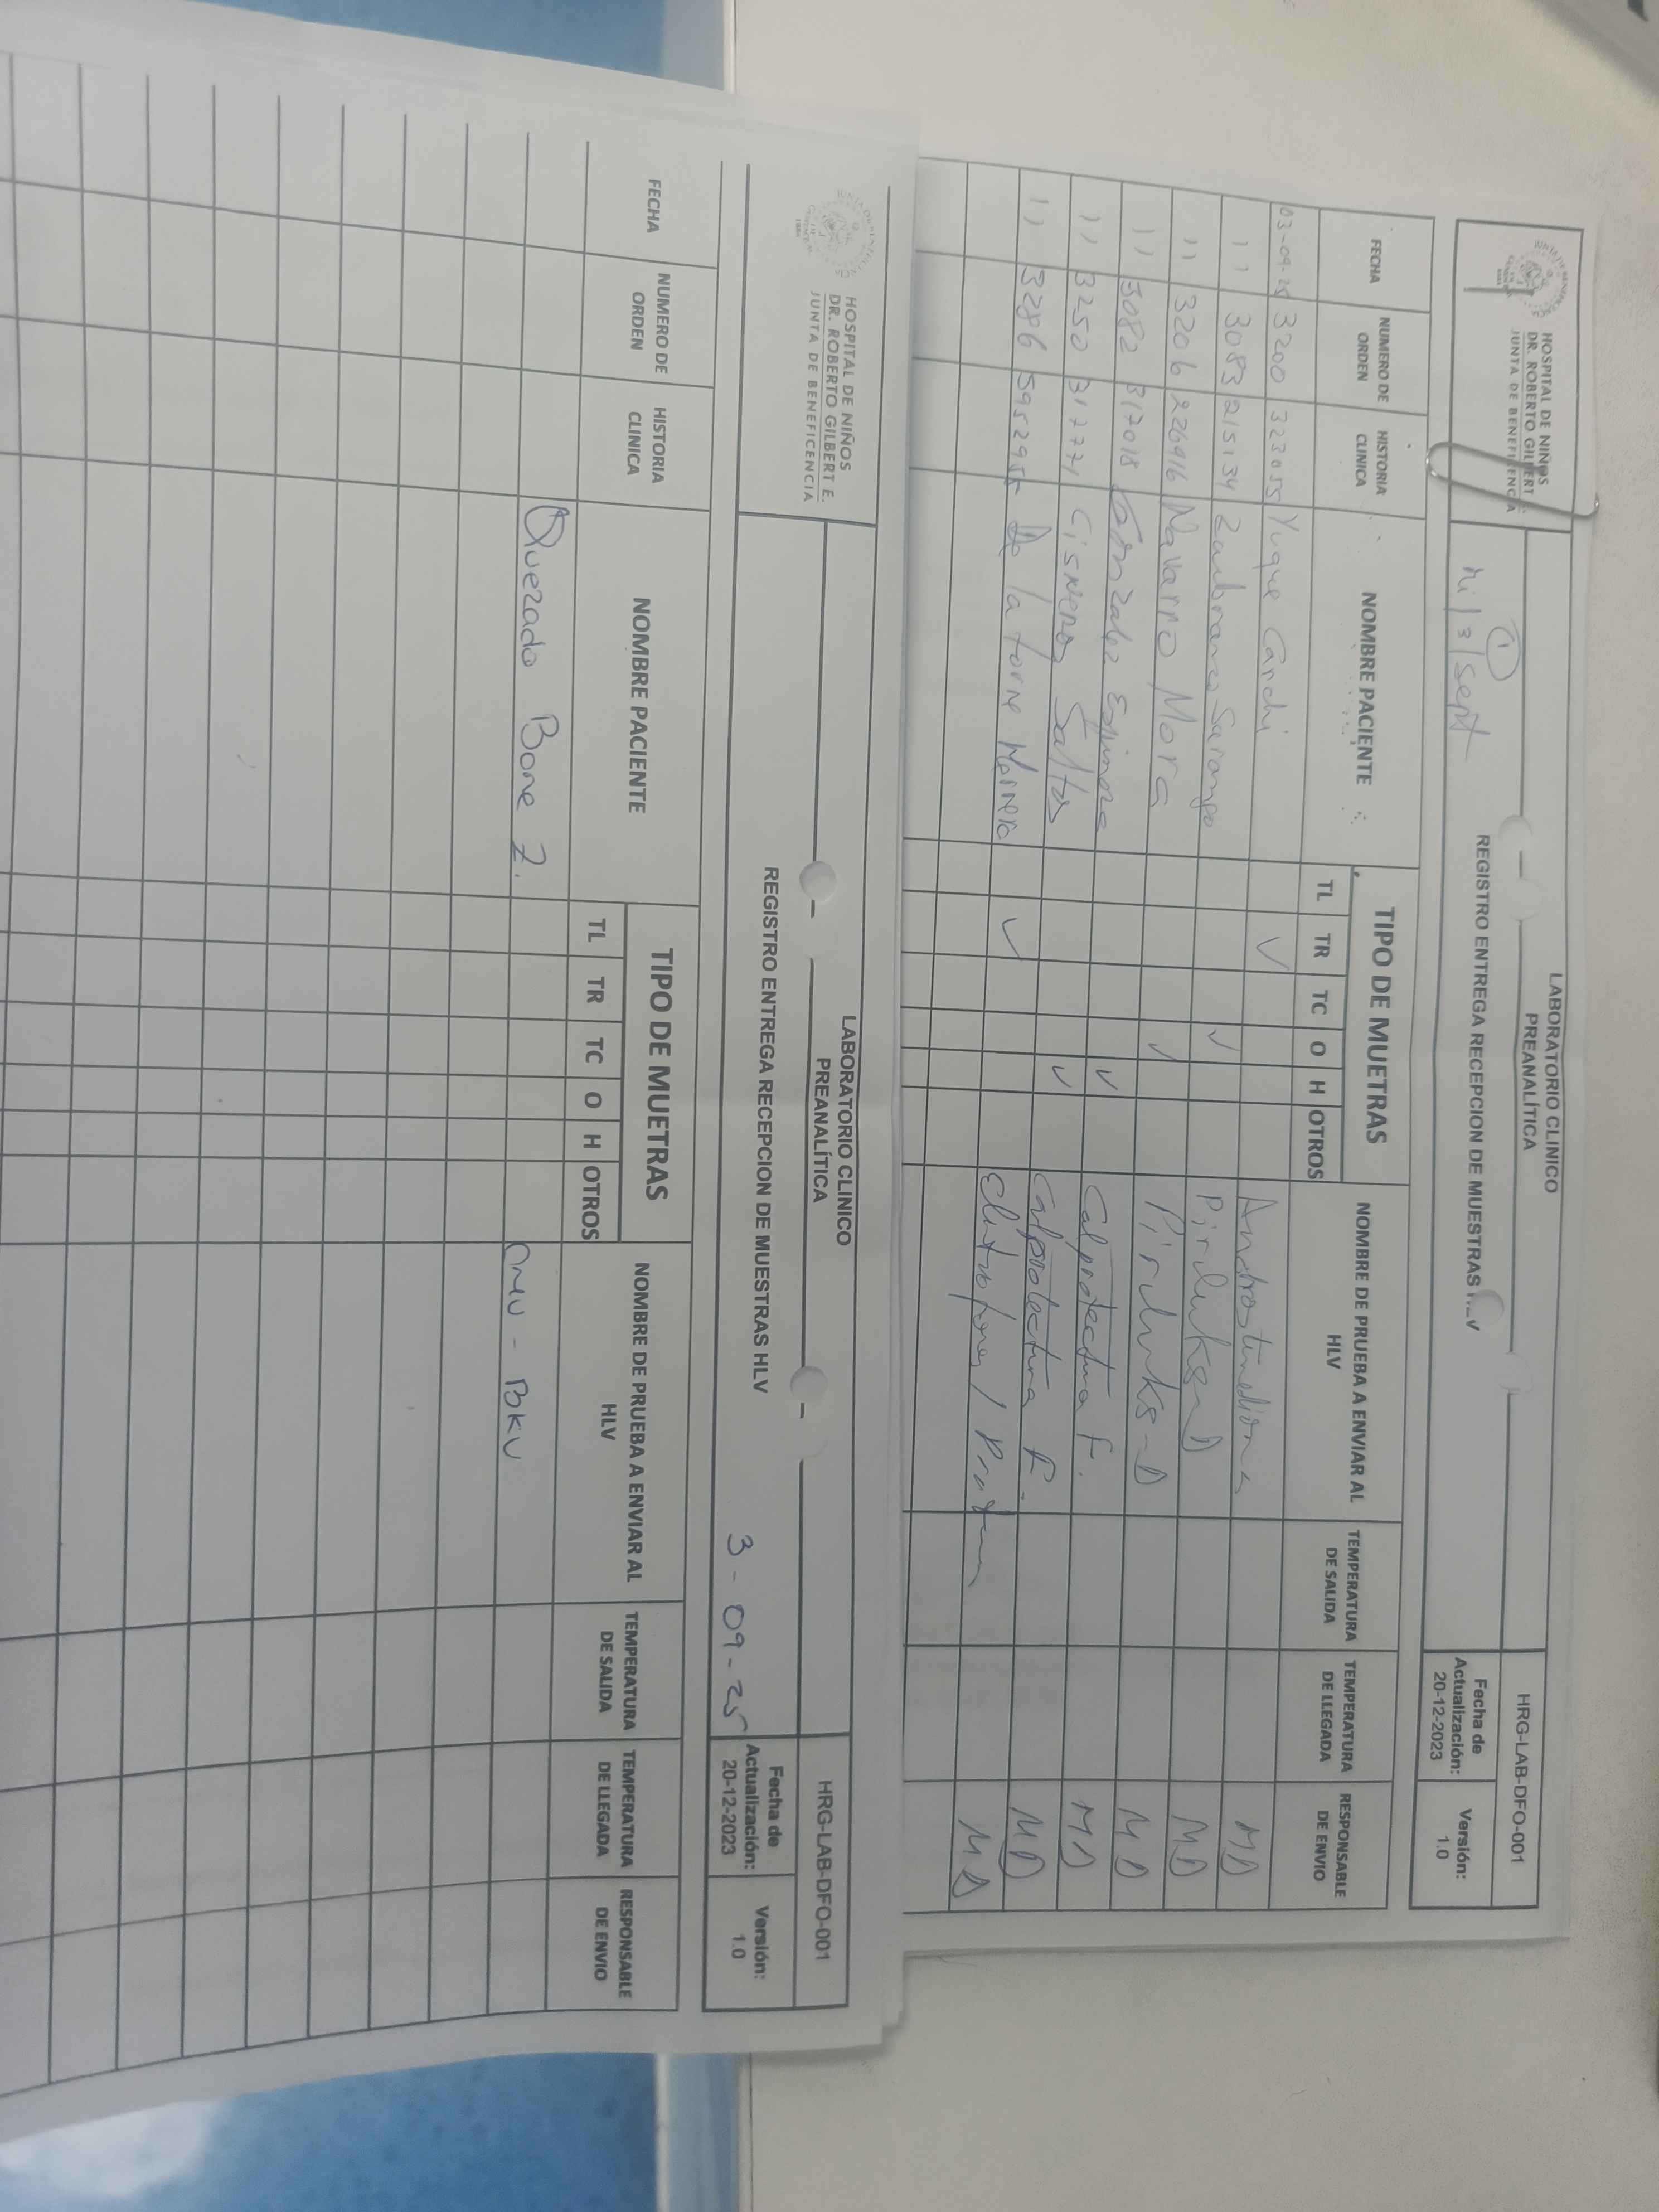 HOSPITAL DE NIÑOS
DR. ROBERTO GILBERT
JUNTA DE BENEFICENCIA
LABORATORIO CLINICO
PREANALÍTICA
HRG-LAB-DFO-001
1
REGISTRO ENTREGA RECEPCION DE MUESTRAS
Mi / 3 / Sept
Fecha de Actualización: 20-12-2023
Versión: 1.0
FECHA NUMERO DE ORDEN HISTORIA CLINICA NOMBRE PACIENTE TIPO DE MUETRAS NOMBRE DE PRUEBA A ENVIAR AL HLV TEMPERATURA DE SALIDA TEMPERATURA DE LLEGADA RESPONSABLE DE ENVIO
TL TR TC O H OTROS
03-09-25 3200 323055 Yuque Candi ✓ MD
11 3083 215134 Zambrano Sarango ✓ MD
11 3206 226916 Navarro Mora ✓ MD
11 3082 317018 González Espinoza ✓ Calprotectina F. MD
11 3250 317771 Cisneros Saltos ✓ Calprotectina F. MD
11 3286 De la torre ✓ MD
HOSPITAL DE NIÑOS
DR. ROBERTO GILBERT E.
JUNTA DE BENEFICENCIA
LABORATORIO CLINICO
PREANALÍTICA
HRG-LAB-DFO-001
REGISTRO ENTREGA RECEPCION DE MUESTRAS HLV
3-09-25
Fecha de Actualización: 20-12-2023
Versión: 1.0
FECHA NUMERO DE ORDEN HISTORIA CLINICA NOMBRE PACIENTE TIPO DE MUETRAS NOMBRE DE PRUEBA A ENVIAR AL HLV TEMPERATURA DE SALIDA TEMPERATURA DE LLEGADA RESPONSABLE DE ENVIO
TL TR TC O H OTROS
Quezado Bone Z. CMV - BKV